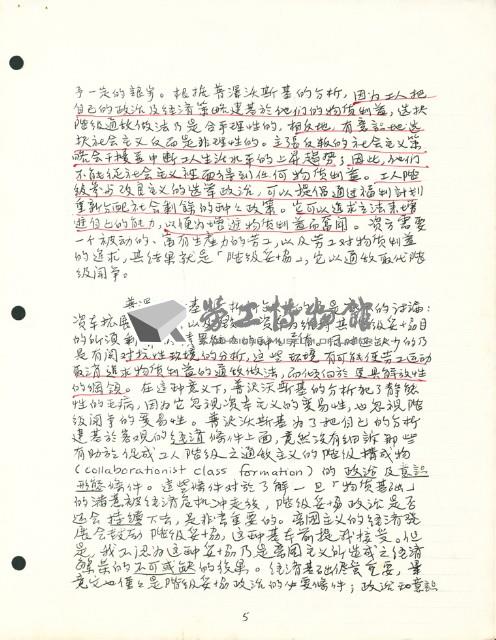 予一定的報酬。根據普澤沃斯基的分析,因為工人把
自己的政治及經濟策略建基於他們的物質利益,選擇
階級適敵做法乃是合乎理性的,相反地,有意識地選
擇社會主義反而是非理性的。主張反叛的社會主義策
略會干擾並中斷工人生活水平的上昇趨勢了因此,他們
不能從社會主義裡面得到任何物質利益。工人階
級若步改良主義的選舉政治,可以提倡通過福利計劃
重新分配社會剩餘的種種政策。它可以追求立法來增
進自己的能力,以便為增進物質利益而奮鬥。資方需要
一個被動的、富有生產力的勞工,以及勞工對物質利益
的追求,其結果就是「階級妥協」,它以適敵取代階
級鬥爭。
勞工博物館
是有關對抗性環境的分析,這些環境有可能使勞工運動
取消追求物質利益的適敵做法,而傾向於更具解放性
的綱領。在這種意義下,普沃沃斯基的分析犯了靜態
性的毛病,因為它忽視資本主義的變易性,也忽視階
級鬥爭的變易性。普沃沃斯基為了把自己的分析
建基於客觀的經濟條件上面,竟然沒有細訴那些
有助於促成工人階級之適敵主義的階級構成物
(collaborationist class formation)的政治及意識
形態條件。這些條件對於了解一旦「物質基礎」
的潛意被經濟危機沖走後,階級妥協政治是否
還會持續下去,是非常重要的。帝國主義的經濟發
展會鼓動階級妥協,這種基本前提我接受。但
是,我不認為這種妥協乃是帝國主義所造成之經濟
繁榮的不可或缺的後果。經濟基礎儘管重要,畢
竟它也僅僅是階級妥協政治的必要條件;政治和意識
5